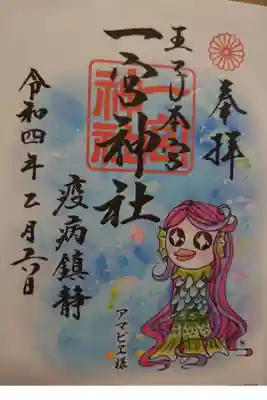 奉拝
王子本宮
一宮神社
一宮神社
疫病鎮静
令和四年 月 日
アマビエ様